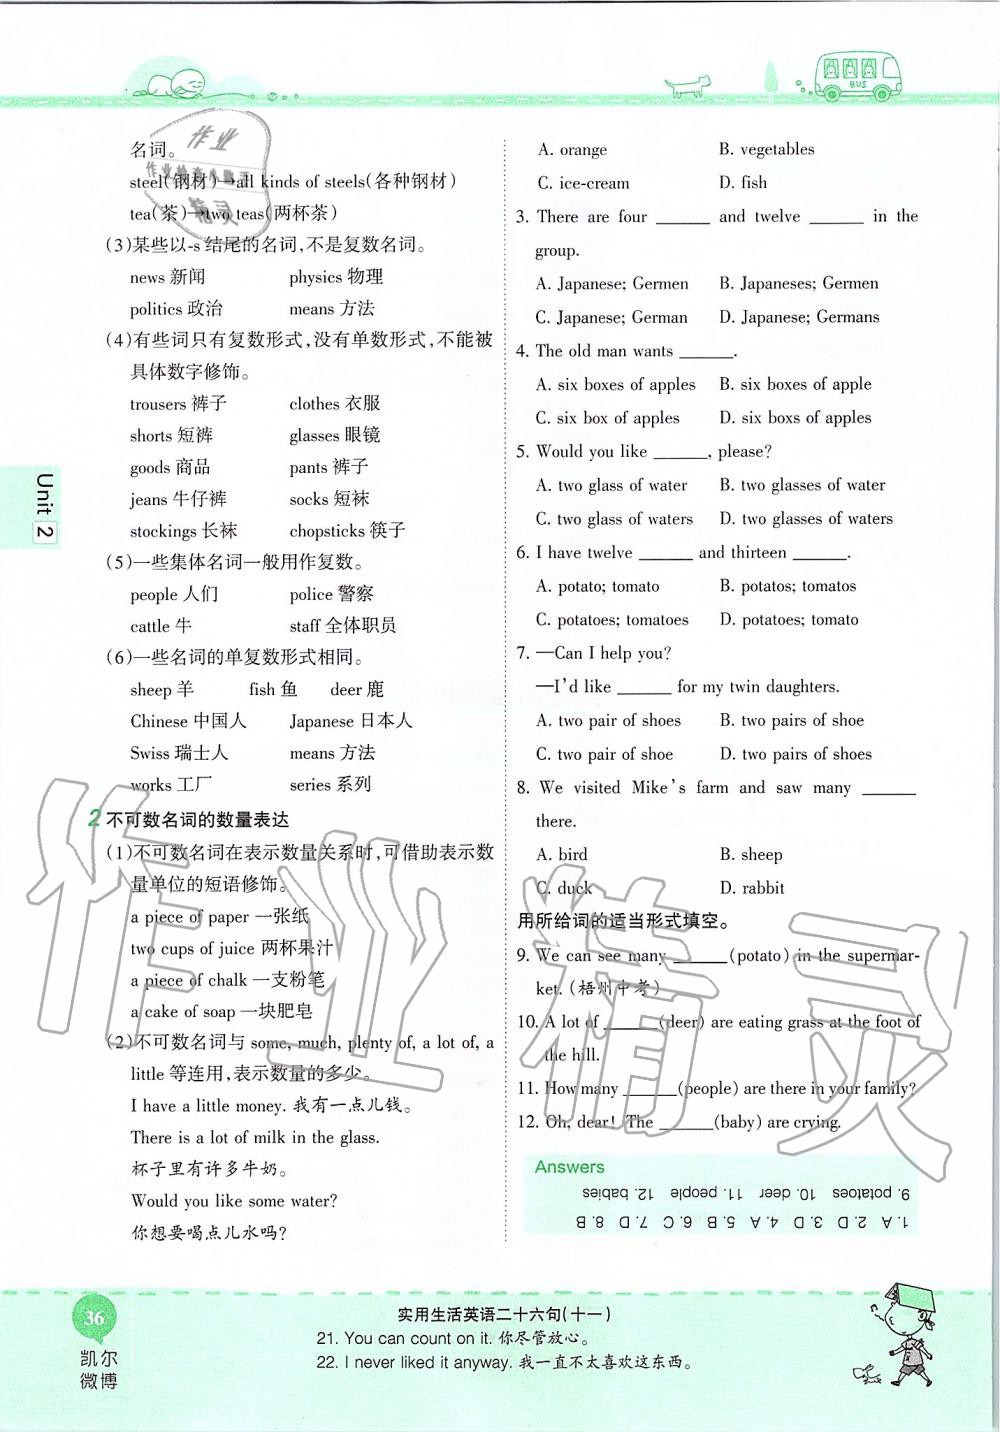 BUS
名词。
steel(钢材)→all kinds of steels(各种钢材)
tea(茶)→two teas(两杯茶)
(3)某些以-s结尾的名词,不是复数名词。
news 新闻 physics 物理
politics 政治 means 方法
(4)有些词只有复数形式,没有单数形式,不能被
具体数字修饰。
trousers 裤子 clothes 衣服
shorts 短裤 glasses 眼镜
goods 商品 pants 裤子
jeans 牛仔裤 socks 短袜
stockings 长袜 chopsticks 筷子
(5)一些集体名词一般用作复数。
people 人们 police 警察
cattle 牛 staff 全体职员
(6)一些名词的单复数形式相同。
sheep 羊 fish 鱼 deer 鹿
Chinese 中国人 Japanese 日本人
Swiss 瑞士人 means 方法
works 工厂 series 系列
2 不可数名词的数量表达
(1)不可数名词在表示数量关系时,可借助表示数
量单位的短语修饰。
a piece of paper 一张纸
two cups of juice 两杯果汁
a piece of chalk 一支粉笔
a cake of soap 一块肥皂
(2)不可数名词与 some, much, plenty of, a lot of, a
little 等连用,表示数量的多少。
I have a little money. 我有一点儿钱。
There is a lot of milk in the glass.
杯子里有许多牛奶。
Would you like some water?
你想要喝点儿水吗?
A. orange B. vegetables
C. ice-cream D. fish
3. There are four ______ and twelve ______ in the
group.
A. Japanese; Germen B. Japaneses; Germen
C. Japanese; German D. Japanese; Germans
4. The old man wants ______.
A. six boxes of apples B. six boxes of apple
C. six box of apples D. six boxs of apples
5. Would you like ______, please?
A. two glass of water B. two glasses of water
C. two glass of waters D. two glasses of waters
6. I have twelve ______ and thirteen ______.
A. potato; tomato B. potatos; tomatos
C. potatoes; tomatoes D. potatoes; tomato
7. —Can I help you?
—I'd like ______ for my twin daughters.
A. two pair of shoes B. two pairs of shoe
C. two pair of shoe D. two pairs of shoes
8. We visited Mike's farm and saw many ______
there.
A. bird B. sheep
C. duck D. rabbit
用所给词的适当形式填空。
9. We can see many ______(potato) in the supermar-
ket. (梧州中考)
10. A lot of ______(deer) are eating grass at the foot of
the hill.
11. How many ______(people) are there in your family?
12. Oh, dear! The ______(baby) are crying.
Answers
1. A 2. D 3. D 4. A 5. B 6. C 7. D 8. B
9. potatoes 10. deer 11. people 12. babies
Unit 2
36
凯尔
微博
实用生活英语二十六句(十一)
21. You can count on it. 你尽管放心。
22. I never liked it anyway. 我一直不太喜欢这东西。
作业
精灵
作业精灵